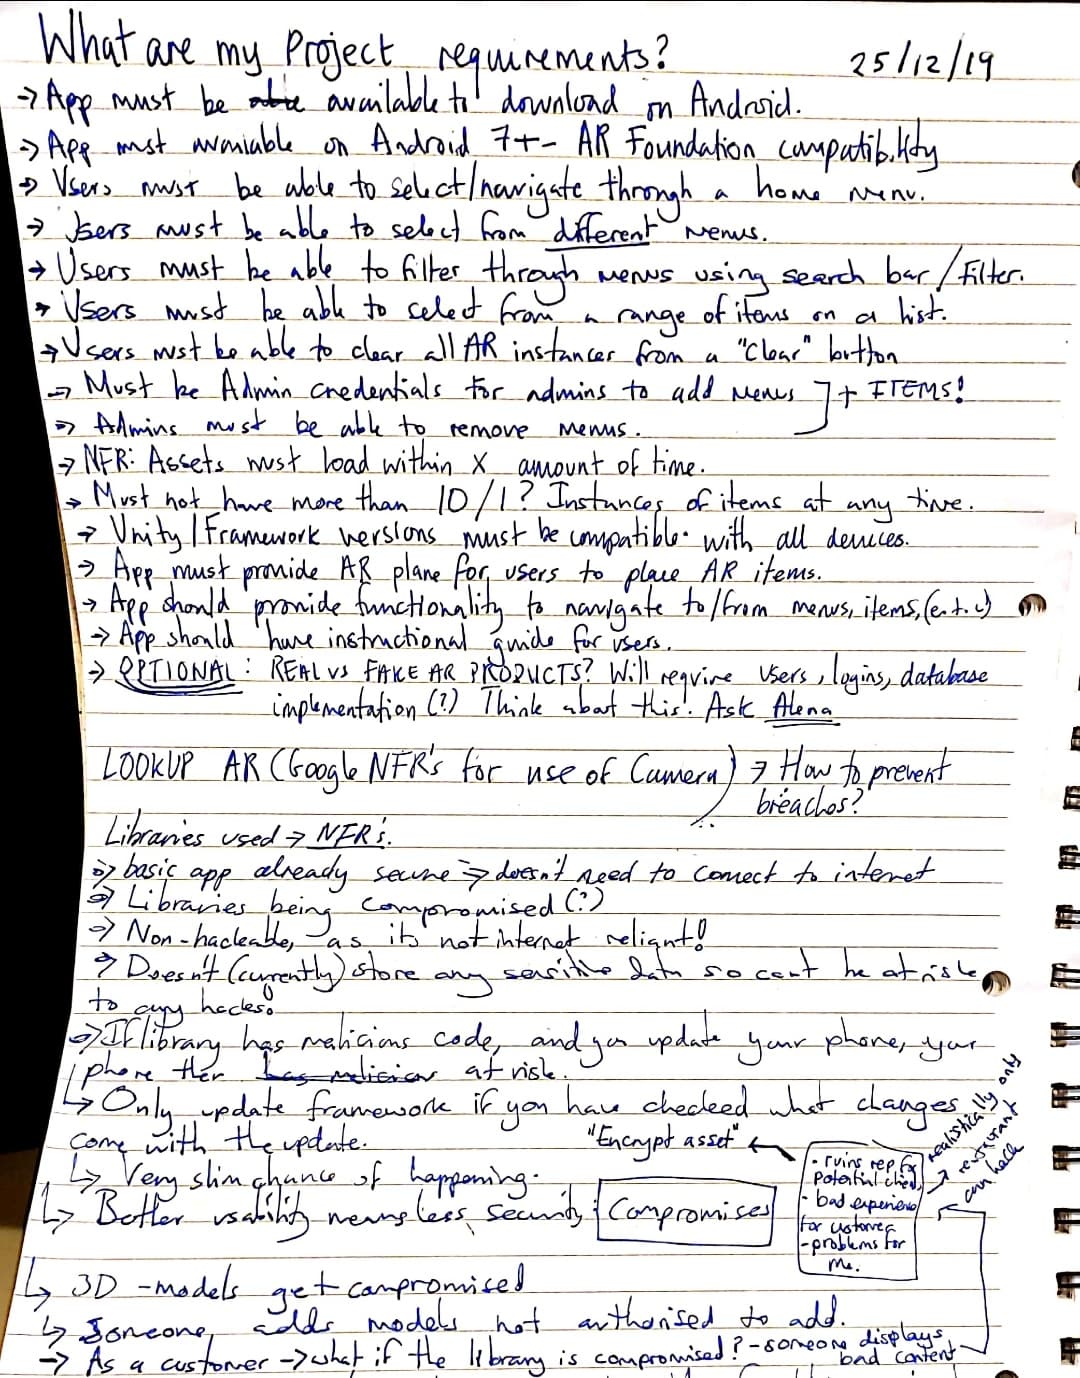 What are my Project requirements?
25/12/19
→ App must be able available to download on Android.
→ App must avaniable on Android 7+ - AR Foundation compatibility
→ Users must be able to select/navigate through a home menu.
→ Users must be able to select from different menus.
→ Users must be able to filter through menus using search bar/Filter.
→ Users must be able to select from a range of items on a list.
→ Users must be able to clear all AR instances from a "Clear" button
→ Must be Admin credentials for admins to add menus ] + ITEMS!
→ Admins must be able to remove menus.
→ NFR: Assets must load within X amount of time.
→ Must not have more than 10/1? Instances of items at any time.
→ Unity/Framework versions must be compatible with all devices.
→ App must provide AR plane for users to place AR items.
→ App should provide functionality to navigate to/from menus, items, (e.t.c)
→ App should have instructional guide for users.
→ OPTIONAL: REAL vs FAKE AR PRODUCTS? Will require users, logins, database
implementation (?) Think about this! Ask Alena
LOOKUP AR (Google NFR's for use of Camera) → How to prevent
breaches?
Libraries used → NFR's.
→ basic app already secure → doesn't need to connect to internet
→ Libraries being compromised (?)
→ Non-hackable, as its not internet reliant!
→ Doesn't (currently) store any sensitive data so cant be at risk
to any hackes!
→ If library has malicious code, and you update your phone, your
phone then has malicious at risk.
↳ Only update framework if you have checked what changes
come with the update.
"Encrypt asset" ←
↳ Very slim chance of happening.
↳ Better usability means less security: Compromises
- ruins rep for
potential client
- bad experience
for customer
- problems for
me.
→ realistically only
restaurant
can hack
↳ 3D-models get compromised
↳ Someone adds models not authorised to add.
→ As a customer → what if the library is compromised? - someone displays
bad content